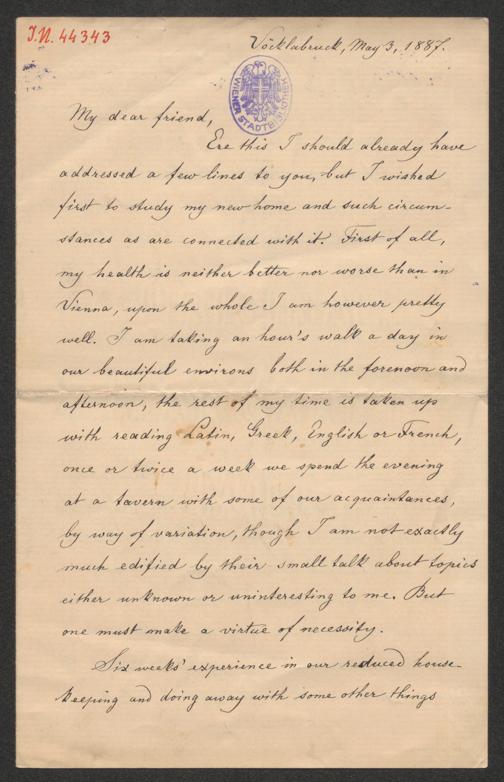 I.N. 44343
Vöcklabruck, May 3, 1887.
WIENER STADTBIBLIOTHEK
My dear friend,
Ere this I should already have
addressed a few lines to you, but I wished
first to study my new home and such circum-
stances as are connected with it. First of all,
my health is neither better nor worse than in
Vienna, upon the whole I am however pretty
well. I am taking an hour's walk a day in
our beautiful environs both in the forenoon and
afternoon, the rest of my time is taken up
with reading Latin, Greek, English or French,
once or twice a week we spend the evening
at a tavern with some of our acquaintances,
by way of variation, though I am not exactly
much edified by their small talk about topics
either unknown or uninteresting to me. But
one must make a virtue of necessity.
Six weeks' experience in our reduced house-
keeping and doing away with some other things